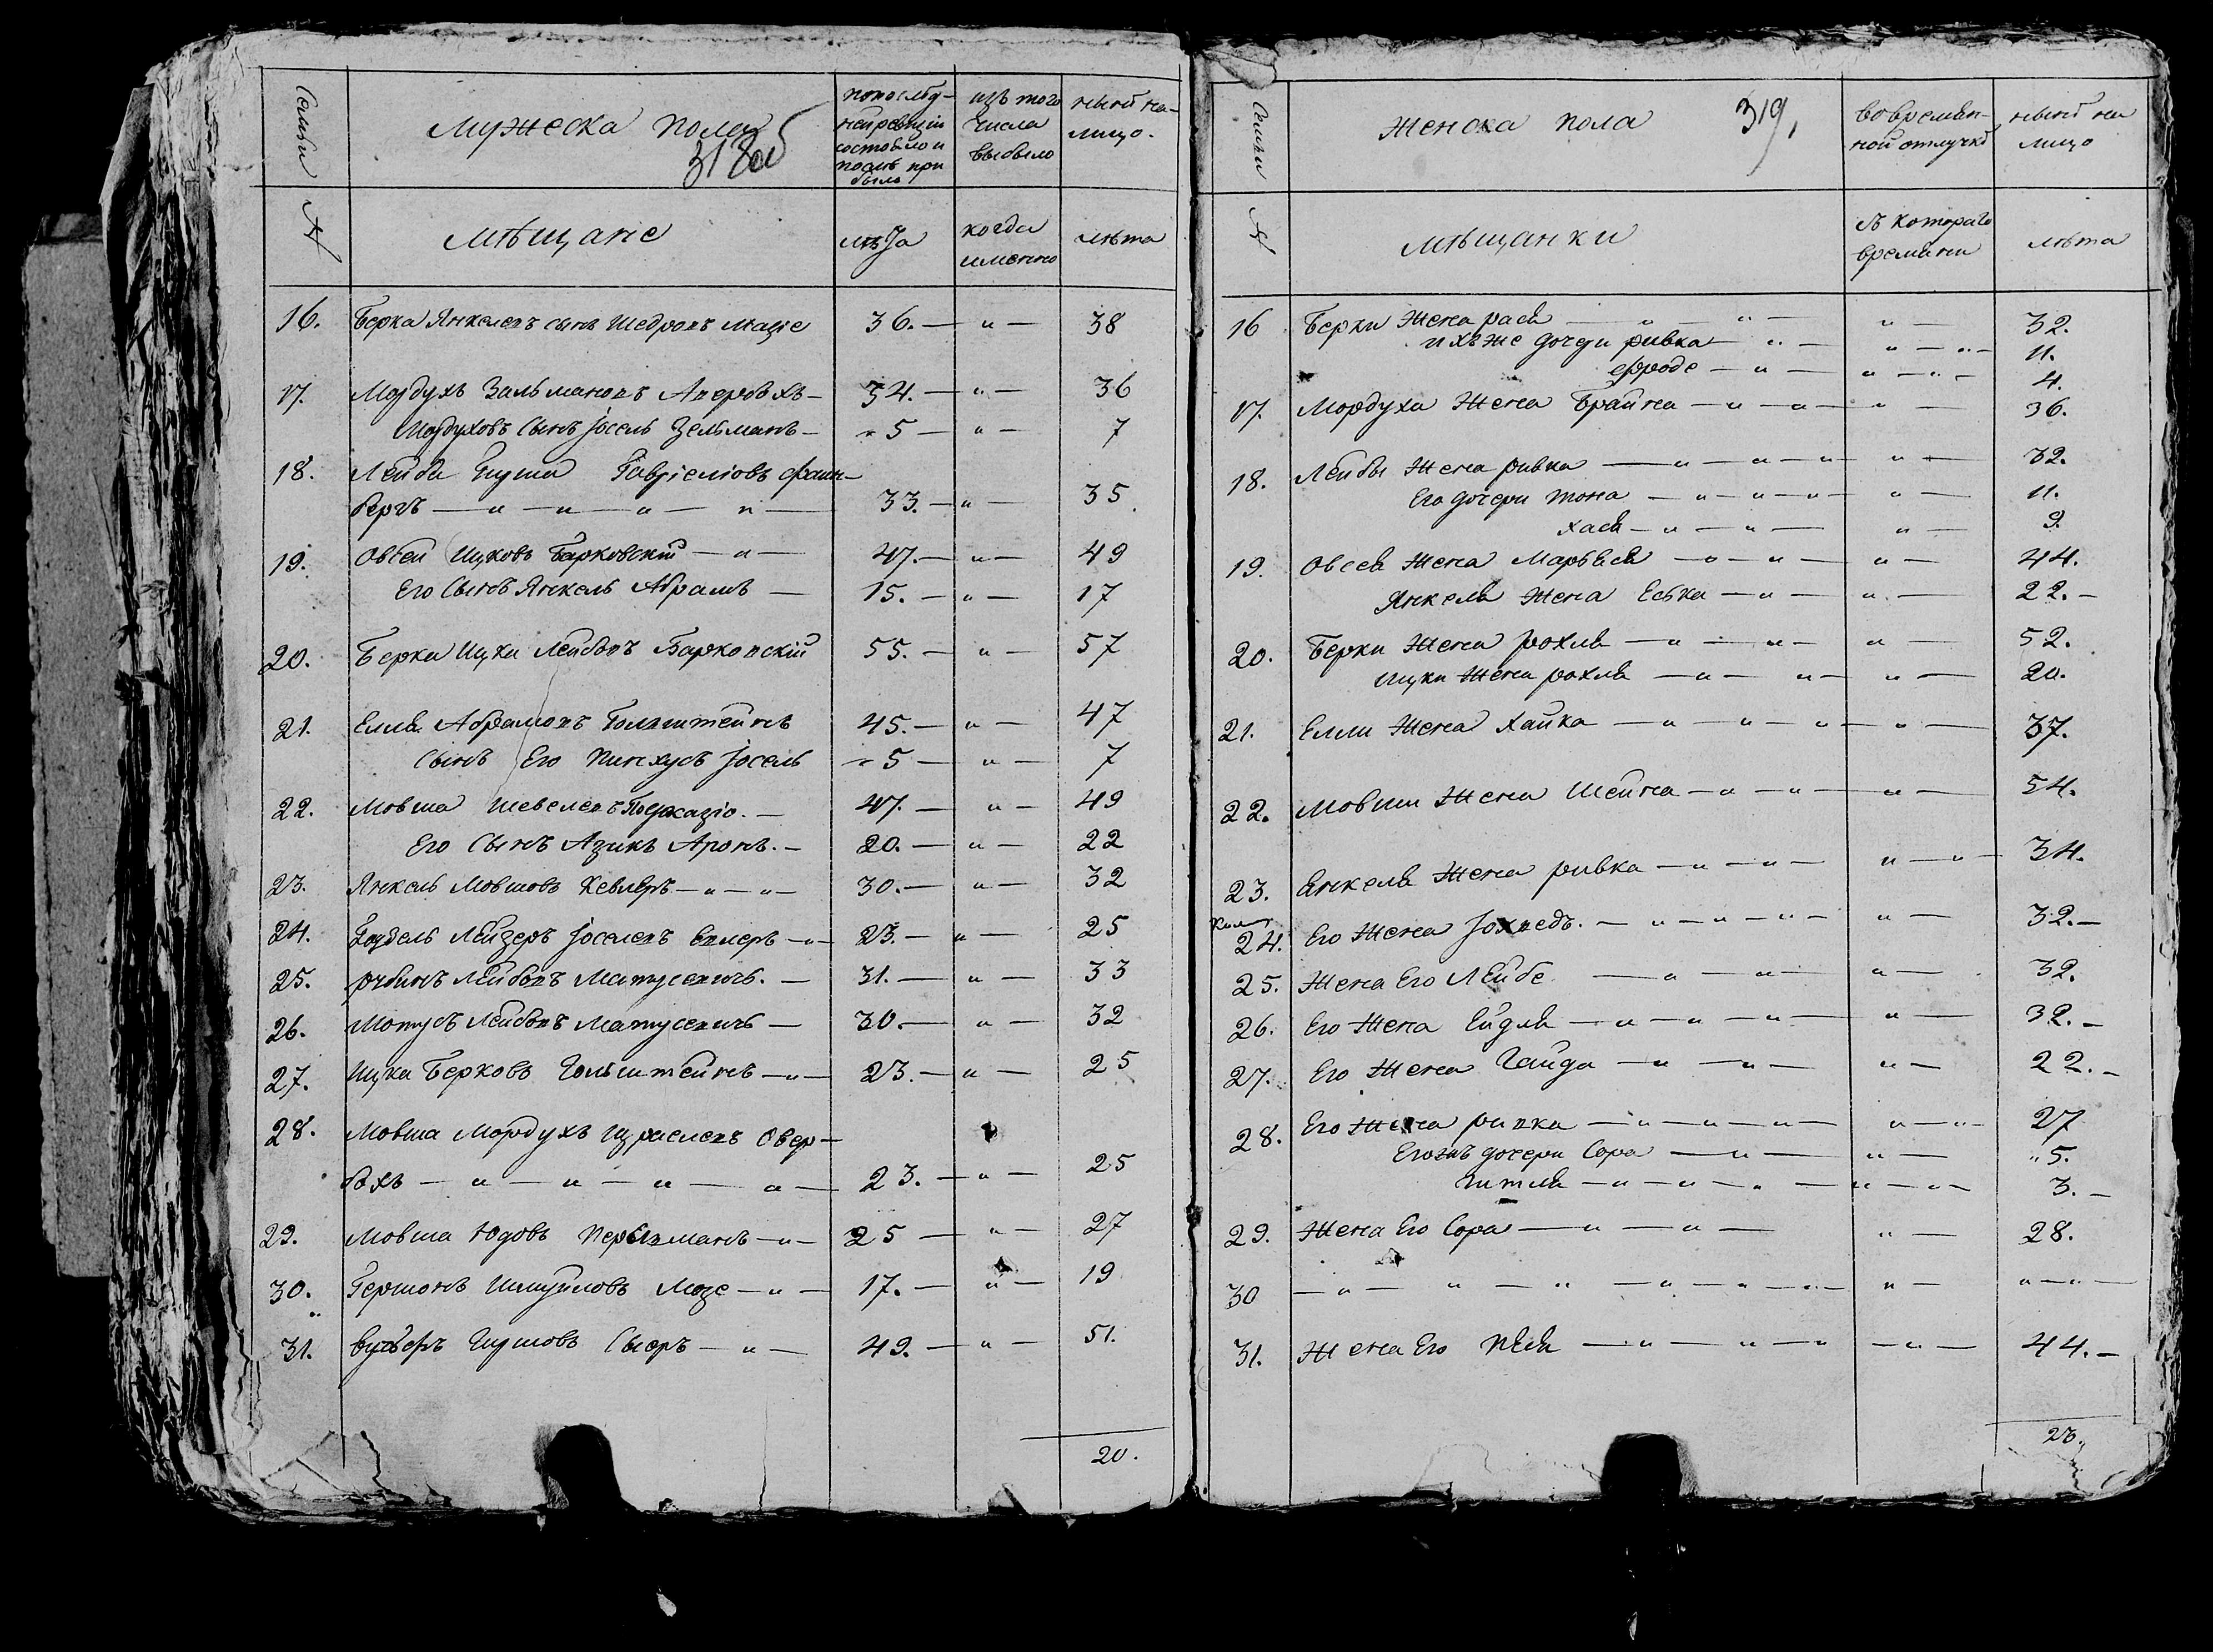 Семьи
Мужеска пола
318 об
по послѣд-
ней ревизіи
состояло и
послѣ при
было
изъ того
числа
выбыло
нынѣ на-
лицо.
№
Мѣщане
лѣта
когда
именно
лѣта
16. Берка Янкелевъ сынъ Шедровъ 36. — „ — 38
17. Мордухъ Зальмановъ 34. — „ — 36
Мордуховъ Сынъ Іосель Зельманъ — „ 5 — „ — 7
18. Лейба Гавріеліовъ Фаин-
бергъ — „ — „ — „ — „ — 33. — „ — 35
19. Овсей Ицковъ Барковскій — „ — 47. — „ — 49
Его Сынъ Янкель Абрамъ — 15. — „ — 17
20. Берка Ицка Лейбовъ Барковскій 55. — „ — 57
21. Еля Абрамовъ Гольштейнъ 45. — „ — 47
Сынъ Его Пинхусъ Іосель „ 5 — „ — 7
22. Мовша Шевелевъ 47. — „ — 49
Его Сынъ Азикъ Аронъ. — 20. — „ — 22
23. Янкель Мовшовъ Кевлеръ — „ — „ — 30. — „ — 32
24. Лейзеръ Іоселевъ — „ — 23. — „ — 25
25. Рубинъ Лейбовъ Матусевичъ. — 31. — „ — 33
26. Мотусъ Лейбовъ Матусевичъ — 30. — „ — 32
27. Ицка Берковъ Гольштейнъ — „ — 23. — „ — 25
28. Мовша Мордухъ Израелевъ Овер-
бохъ — „ — „ — „ — „ — 23. — „ — 25
29. Мовша Юдовъ — „ — 25 — „ — 27
30. Гершонъ Шмуйловъ Мозе — „ — 17. — „ — 19
31. — „ — 49. — „ — 51.
20.
Семьи
Женска пола
319,
во времен-
ной отлучкѣ
нынѣ на
лицо
№
Мѣщанки
съ котораго
времени
лѣта
16 Берки Жена Рася — „ — „ — „ — 32.
ихъ же дочери Ривка — „ — „ — „ — 11.
Фроде — „ — „ — „ — 4.
17. Мордуха Жена Брайна — „ — „ — „ — 36.
18. Лейбы Жена Ривка — „ — „ — „ „ — 32.
Его дочери Тона — „ — „ — „ — „ — 11.
Хася — „ — „ — „ — 9.
19. Овсея Жена Марьяся — „ — „ — „ — 44.
Янкеля Жена Еска — „ — „ — 22. —
20. Берки Жена Рохля — „ — „ — „ — 52.
Ицки Жена Рохля — „ — „ — „ — 20.
21. Елли Жена Хайка — „ — „ — „ — „ — 37.
22. Мовши Жена Шейна — „ — „ — „ — 54.
23. Янкеля Жена Ривка — „ — „ — „ — „ — 34.
24. Его Жена Іохведъ. — „ — „ — „ — „ — 32. —
25. Жена Его Лейбе — „ — „ — „ — 32.
26. Его Жена Ейдля — „ — „ — „ — „ — 32. —
27. Его Жена — „ — „ — „ — 22. —
28. Его Жена Ривка — „ — „ — „ — „ — „ — 27
Его жъ дочери Сора — „ — „ — „ 5.
Гитля — „ — „ — „ — „ — „ — 3. —
29. Жена Его Сора — „ — „ — „ — 28.
30 — „ — „ — „ — „ — „ — „ — „ — „ — „ —
31. Жена Его — „ — „ — „ — „ — 44. —